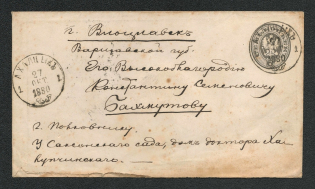 г. Влоцлавекъ
Варшавской губ.
Его Высокоблагородію
Константину Семеновичу
Бахмутову
г. Полковнику.
У Саксонскаго сада, домъ доктора Ка
27
ОКТ.
1880
1880
1